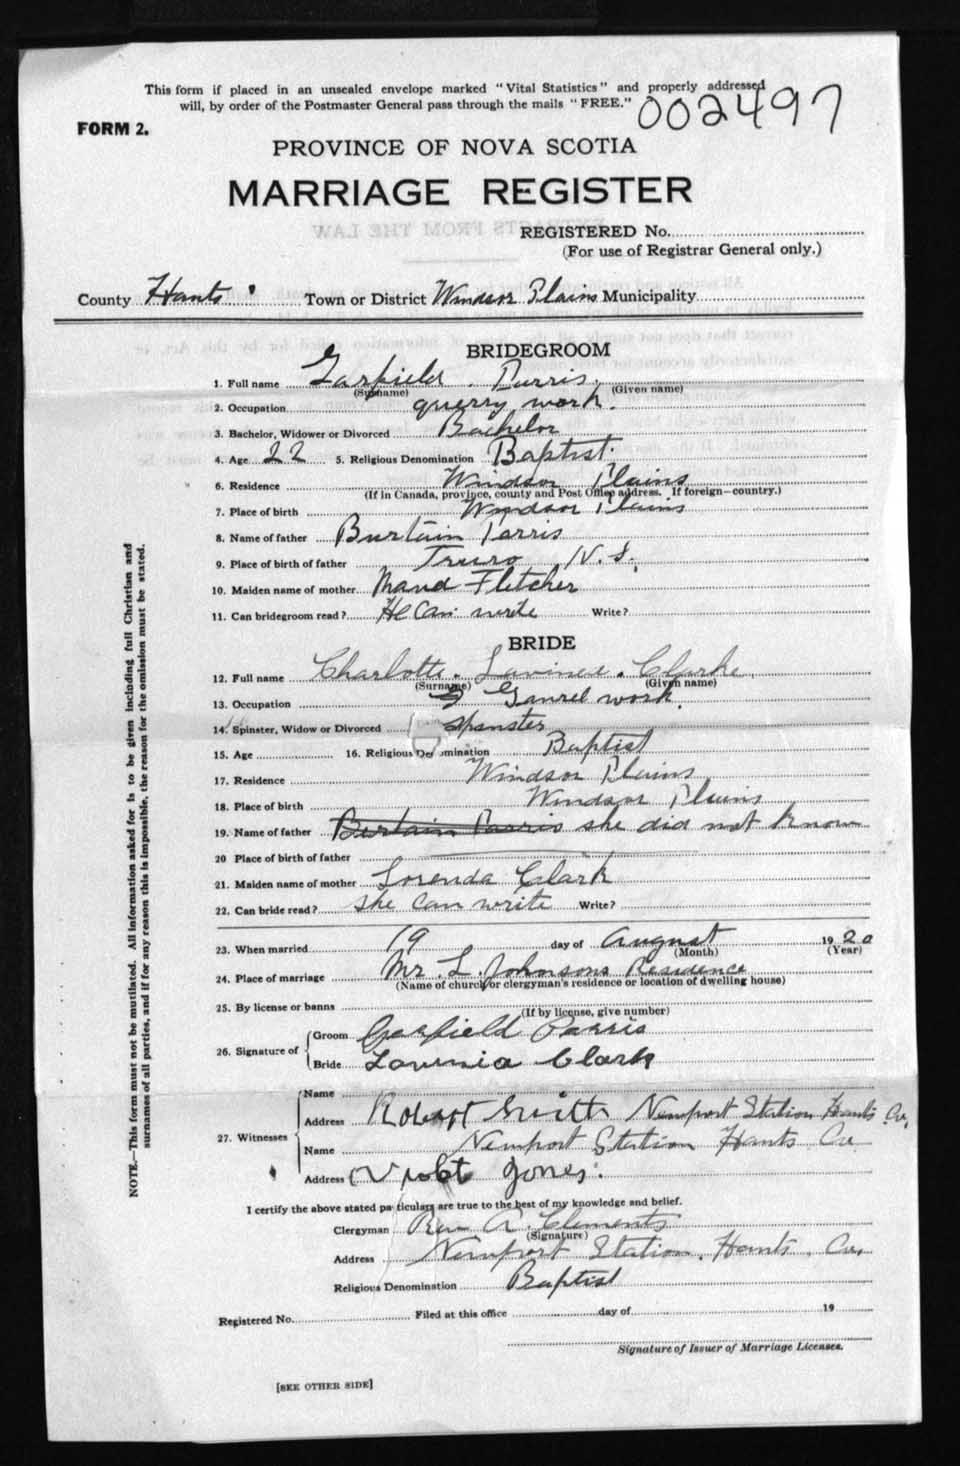 This form if placed in an unsealed envelope marked "Vital Statistics" and properly addressed
will, by order of the Postmaster General pass through the mails "FREE."
002497
FORM 2.
PROVINCE OF NOVA SCOTIA
MARRIAGE REGISTER
EXTRACTS FROM THE LAW
REGISTERED No.
(For use of Registrar General only.)
County Hants Town or District Windsor Plains Municipality
BRIDEGROOM
1. Full name Garfield Parris
(Surname) (Given name)
2. Occupation querry work.
3. Bachelor, Widower or Divorced Bachelor
4. Age 22 5. Religious Denomination Baptist.
6. Residence Windsor Plains
(If in Canada, province, county and Post Office address. If foreign—country.)
7. Place of birth Windsor Plains
8. Name of father Burtain Parris
9. Place of birth of father Truro N.S.
10. Maiden name of mother Maud Fletcher
11. Can bridegroom read? He Can write Write?
BRIDE
12. Full name Charlotte. Lavinea. Clarke
(Surname) (Given name)
13. Occupation Ganrel work.
14. Spinster, Widow or Divorced Spinster
15. Age 16. Religious Denomination Baptist
17. Residence Windsor Plains
18. Place of birth Windsor Plains
19. Name of father Burtain Parris she did not know
20 Place of birth of father
21. Maiden name of mother Lorenda Clark
22. Can bride read? she can write Write?
23. When married 19 day of August 1920
(Month) (Year)
24. Place of marriage Mr. L. Johnsons Residence
(Name of church or clergyman's residence or location of dwelling house)
25. By license or banns
(If by license, give number)
26. Signature of Groom Garfield Parris
Bride Lavinia Clark
27. Witnesses Name
Address Robert Smith Newport Station Hants Co,
Name Newport Station Hants Co
Address Violet Jones.
I certify the above stated particulars are true to the best of my knowledge and belief.
Clergyman Rev A. Clements
(Signature)
Address Newport Station. Hants. Co.
Religious Denomination Baptist
Registered No. Filed at this office day of 19
Signature of Issuer of Marriage Licenses.
[SEE OTHER SIDE]
NOTE.—This form must not be mutilated. All information asked for is to be given including full Christian and
surnames of all parties, and if for any reason this is impossible, the reason for the omission must be stated.